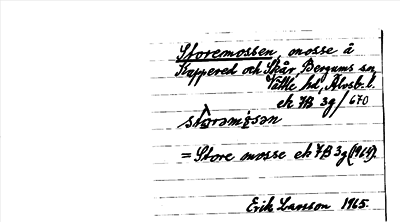 Storemossen, mosse å
Kappered och Skår, Bergums sn,
Vättle hd, Älvsb. l.
ek 7B 3g/670
= Store mosse ek 7B 3g (1964)
Erik Larsson 1965.